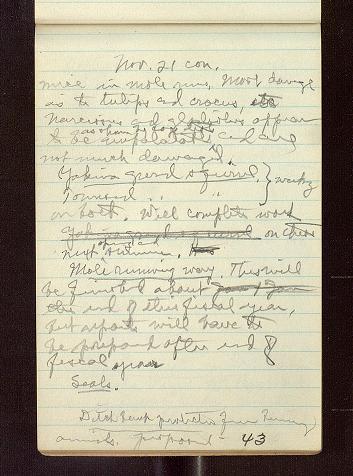 Nov. 21 con.
mice in mole runs. Most damage
is to tulips and crocus,
Narcissus and gladiolus appear
to be unpalatable and are
not much damaged.
Yakima ground squirrel } working
Townsend " "
on both. Will complete work
Yakima ground squirrel on these
next summer.
Mole running way. This will
be finished about
the end of this fiscal year,
but reports will have to
be prepared after end of
fiscal year
Seals.
Ditch bank protection from burrowing
animals. proposed - 43